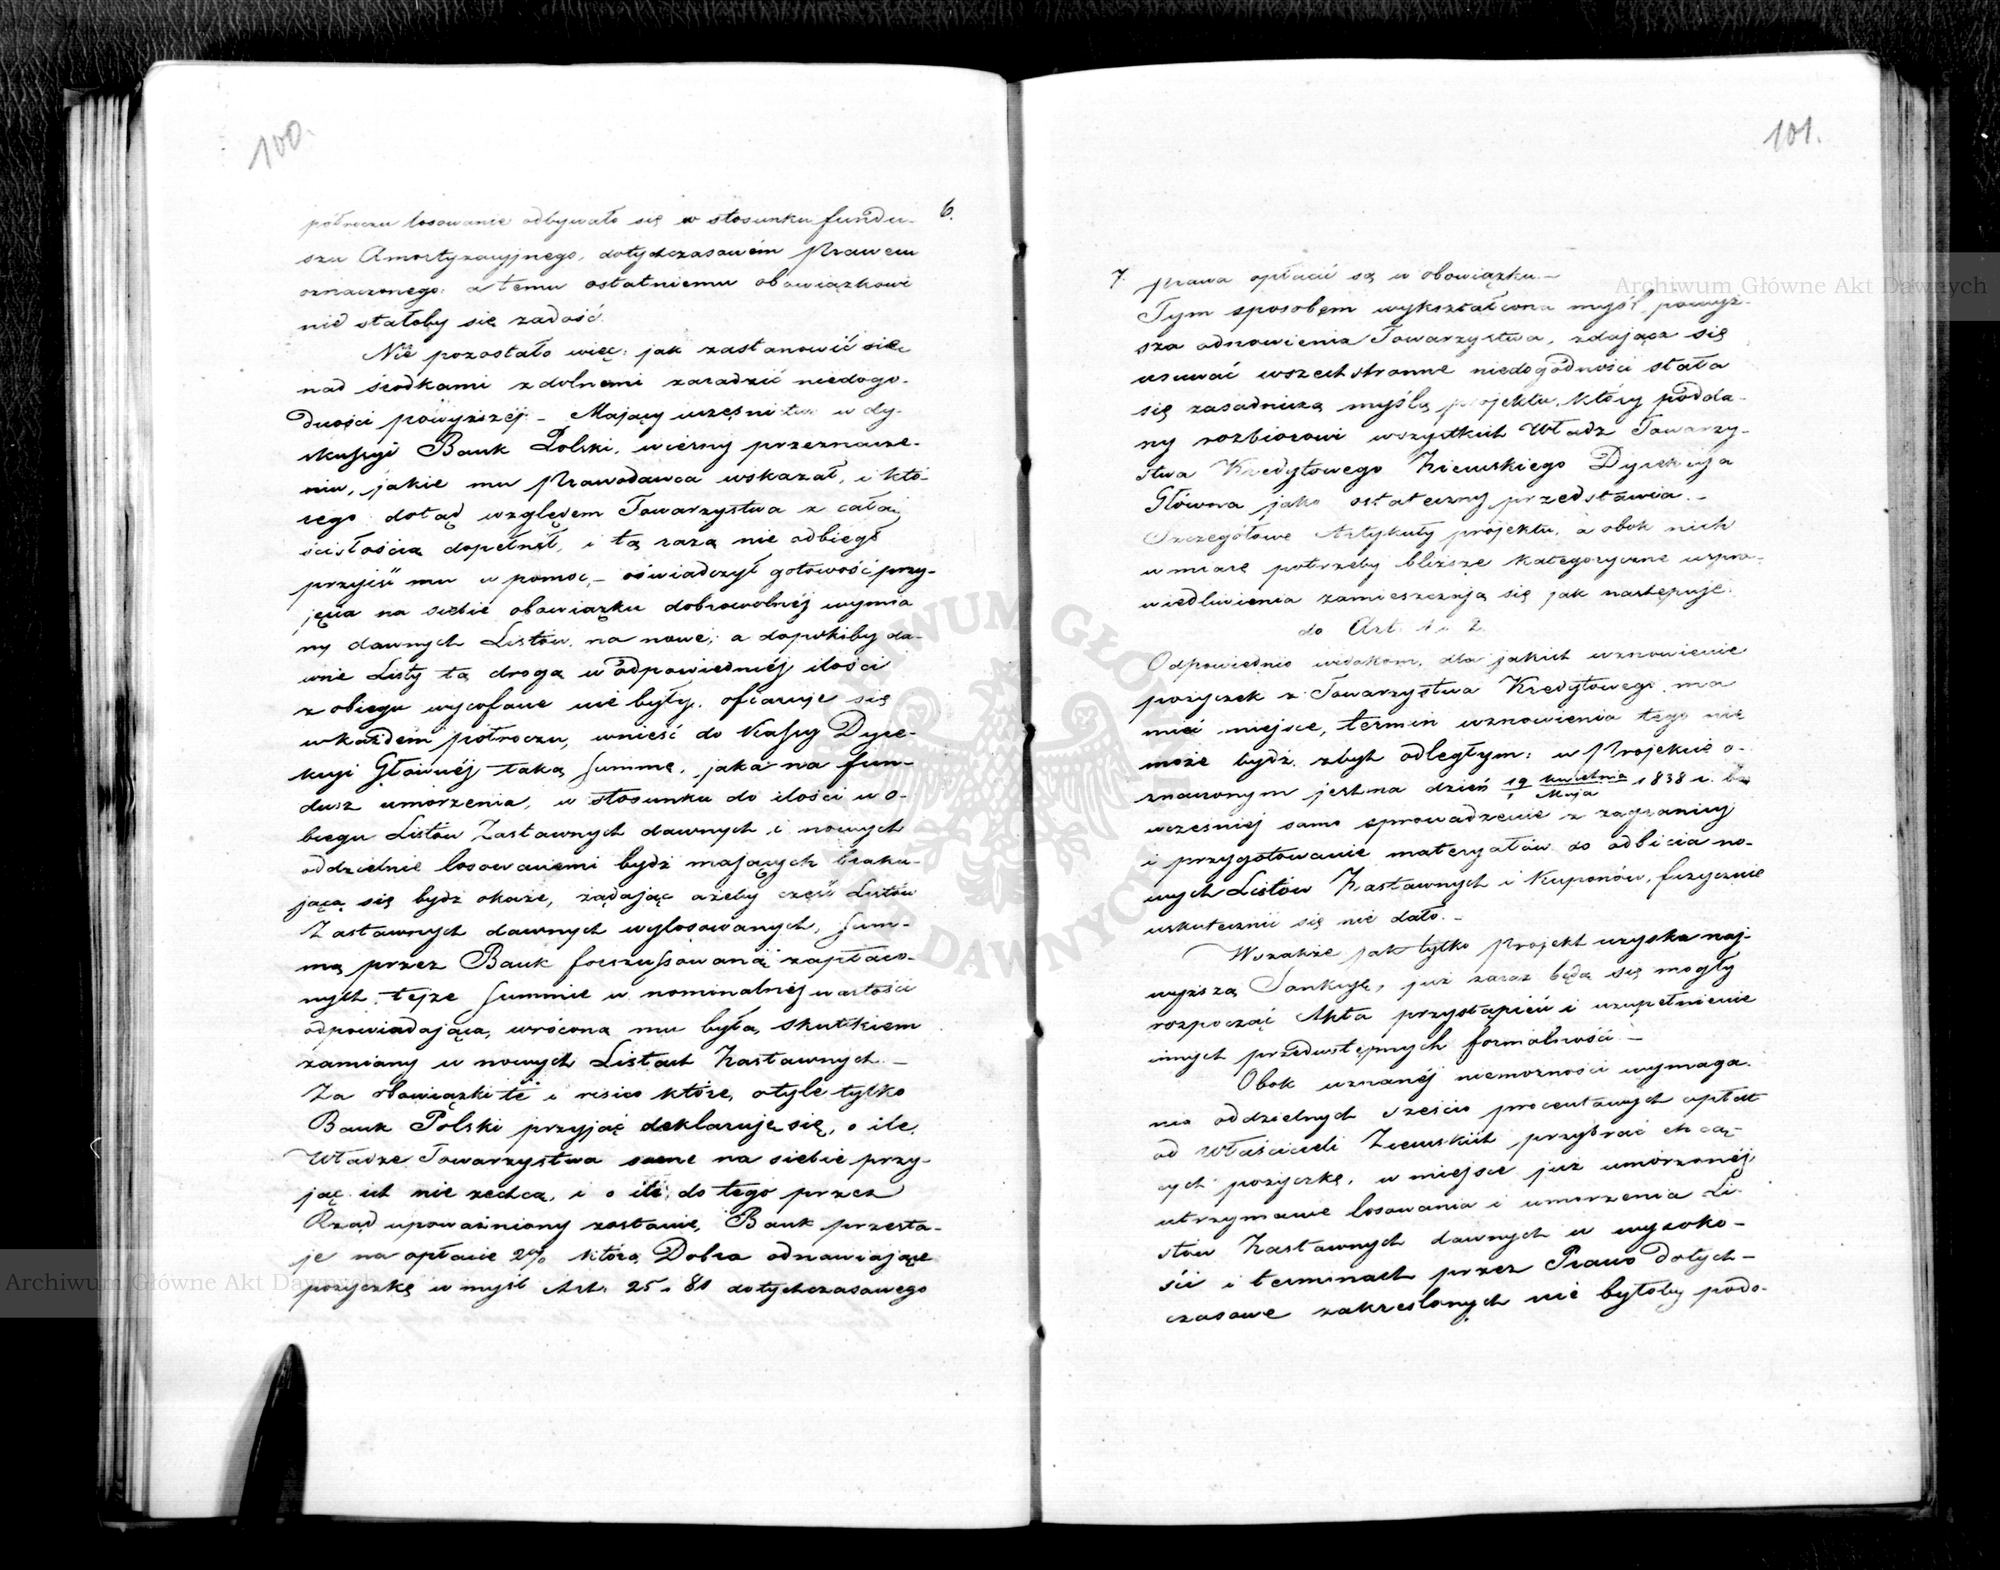 100.
6.
półroczu losowanie odbywało się w stosunku fundu-
szu Amortyzacyjnego, dotychczasowém Prawem
oznaczonego: a temu ostatniemu obowiązkowi
nie stałoby się zadość.
Nie pozostało więc: jak zastanowić się
nad środkami zdolnemi zaradzić niedogo-
dności powyższéj. - Mający uczęsnictwo w dy-
skussyi Bank Polski, wierny przeznacze-
niu, jakie mu Prawodawca wskazał, i któ-
rego dotąd względem Towarzystwa z całą
ścisłością dopełnił, i tą razą nie odbiegł
przyjść mu w pomoc, - oświadczył gotowość przy-
jęcia na siebie obowiązku dobrowolnéj wymia
ny dawnych Listów na nowe; a dopókiby da-
wne Listy tą drogą w odpowiedniéj ilości
z obiegu wycofane nie były, ofiaruje się
w każdem półroczu, wnieść do Kassy Dyre-
kcyi Głównéj taką summę, jaka na fun-
dusz umorzenia, w stosunku do ilości w o-
biegu Listów Zastawnych dawnych i nowych
oddzielnie losowanemi bydź mających braku-
jącą się bydź okaże, żądając ażeby część Listów
Zastawnych dawnych wylosowanych, sum-
mą przez Bank forszussowaną zapłaco-
nych, tejże summie w nominalnéj wartości
odpowiadająca, wróconą mu była, skutkiem
zamiany w nowych Listach Zastawnych. -
Za obowiązki te i risico które, o tyle tylko
Bank Polski przyjąć deklaruje się, o ile
Władze Towarzystwa same na siebie przy-
jąć ich nie zechcą, i o ile do tego przez
Rząd upoważniony zostanie, Bank przesta-
je na opłacie 2% którą Dobra odnawiające
pożyczkę w myśl Art. 25 i 81 dotychczasowego
101.
7. prawa opłacić są w obowiązku. -
Tym sposobem wykształcona myśl powyż-
sza odnowienia Towarzystwa, zdając się
usuwać wszechstronne niedogodności stała
się zasadniczą myślą projektu, który podda-
ny rozbiorowi wszystkich Władz Towarzy-
stwa Kredytowego Ziemskiego Dyrekcya
Główna jako ostateczny przedstawia. -
Szczegółowe Artykuły projektu, a obok nich
w miarę potrzeby bliższe kategoryczne uspra-
wiedliwienia zamieszczają się jak następuje:
do Art. 1 i 2.
Odpowiednio widokom, dla jakich wznowienie
pożyczek z Towarzystwa Kredytowego ma
mieć miejsce, termin wznowienia tego nie
może bydź zbyt odległym: w Projekcie o-
znaczonym jest na dzień 19 kwietnia / 1 Maja 1838 r. bo
wcześniéj samo sprowadzenie z zagranicy
i przygotowanie materyałów do odbicia no-
wych Listów Zastawnych i Kuponów, fizycznie
uskutecznić się nie dało. -
Wszakże jak tylko Projekt uzyska naj-
wyższą Sankcyę, już zaraz będą się mogły
rozpocząć Akta przystąpień i uzupełnienie
innych przedwstępnych formalności. -
Obok uznanéj niemożności wymaga-
nia oddzielnych sześcio procentowych opłat
od Właścicieli Ziemskich przybrać chcą-
cych pożyczkę, w miejsce już umorzonéj,
utrzymanie losowania i umorzenia Li-
stów Zastawnych dawnych w wysoko-
ści i terminach przez Prawo dotych-
czasowe zakreślonych nie byłoby podo-